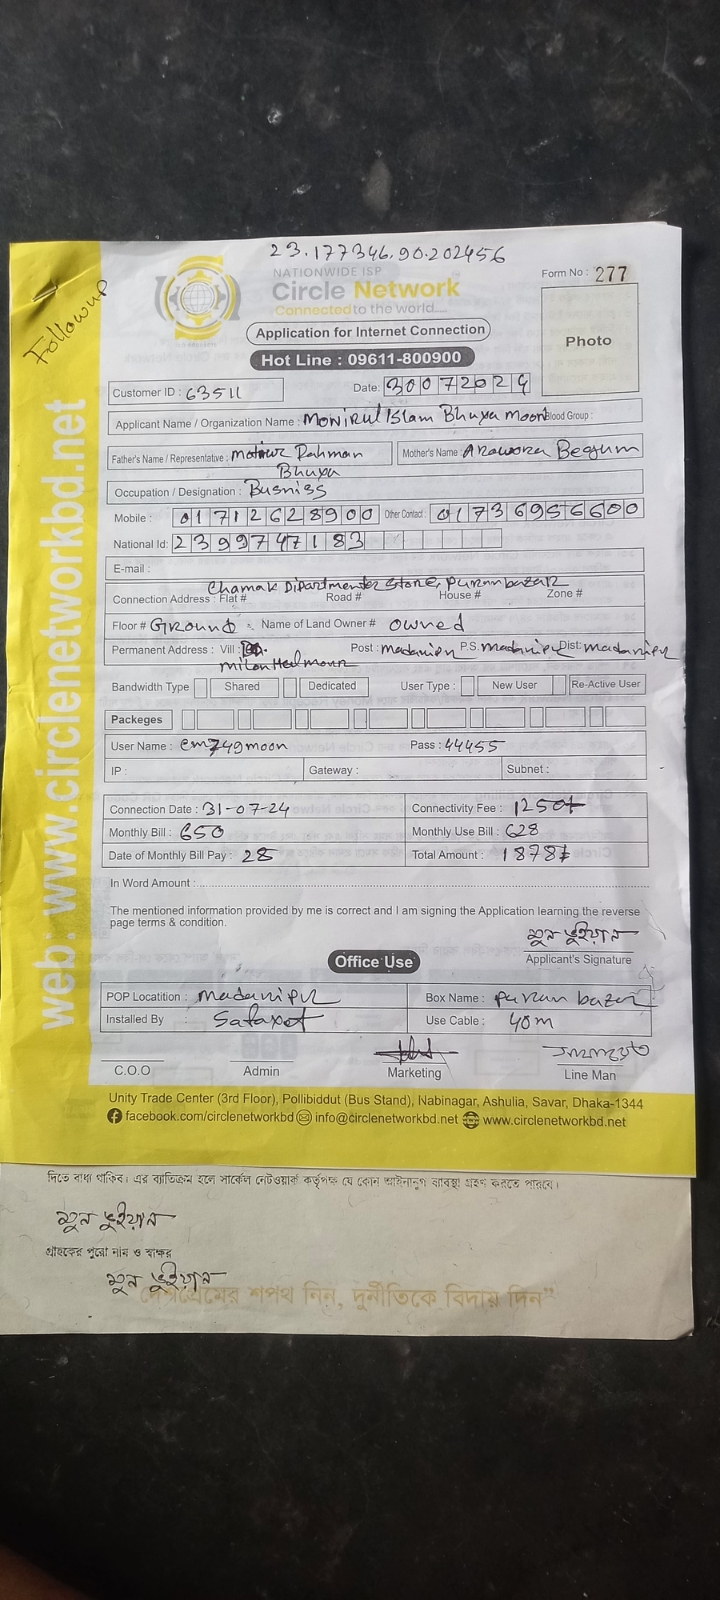 23.177346.90.202456
Followup
NATIONWIDE ISP
Circle Network
Connected to the world....
Form No : 277
Photo
Application for Internet Connection
Hot Line : 09611-800900
Customer ID : 63511 Date: 30072024
Applicant Name / Organization Name : Monirul Islam Bhuya Moon Blood Group :
Father's Name / Representative : Motiur Rahman Bhuya Mother's Name :  Begum
Occupation / Designation : Busniss
Mobile : 01712628900 Other Contact : 01736956600
National Id: 2399747183
E-mail :
Chamak Dipartmental Store, Puran bazar
Connection Address : Flat # Road # House # Zone #
Floor # Ground Name of Land Owner # owned
Permanent Address : Vill : Post : Madaripur P.S. Madaripur Dist: Madaripur
Bandwidth Type Shared Dedicated User Type : New User Re-Active User
Packeges
User Name : cm749moon Pass : 44455
IP : Gateway : Subnet :
Connection Date : 31-07-24 Connectivity Fee : 1250/-
Monthly Bill : 650 Monthly Use Bill : 628
Date of Monthly Bill Pay : 28 Total Amount : 1878/-
In Word Amount :
The mentioned information provided by me is correct and I am signing the Application learning the reverse
page terms & condition.
মুন ভুইয়ান
Applicant's Signature
Office Use
POP Locatition : Madaripur Box Name : Puran bazar
Installed By : Use Cable : 40m
C.O.O Admin Marketing Line Man
Unity Trade Center (3rd Floor), Pollibiddut (Bus Stand), Nabinagar, Ashulia, Savar, Dhaka-1344
facebook.com/circlenetworkbd info@circlenetworkbd.net www.circlenetworkbd.net
web: www.circlenetworkbd.net
দিতে বাধ্য থাকিব। এর ব্যতিক্রম হলে সার্কেল নেটওয়ার্ক কর্তৃপক্ষ যে কোন আইনানুগ ব্যবস্থা গ্রহণ করতে পারবে।
মুন ভুইয়ান
গ্রাহকের পুরো নাম ও স্বাক্ষর
মুন ভুইয়ান
দেশপ্রেমের শপথ নিন, দুর্নীতিকে বিদায় দিন"